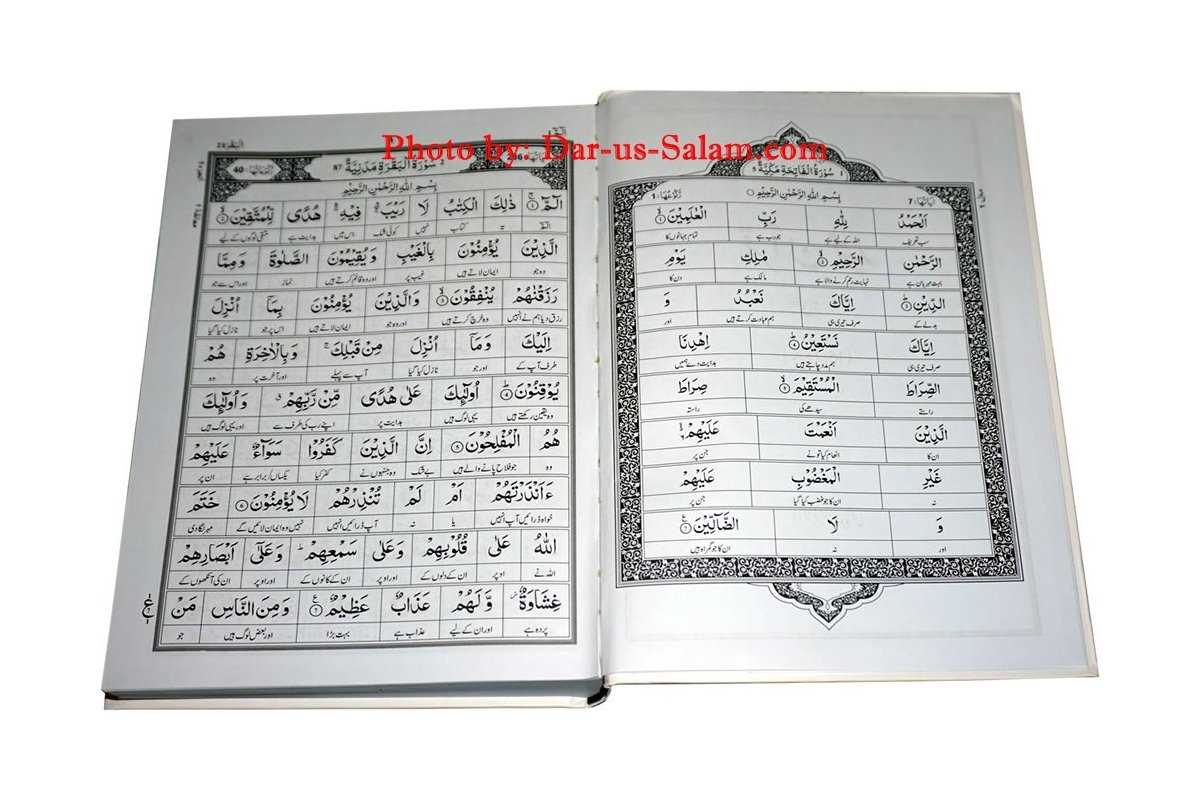 Photo by: Dar-us-Salam.com
اٰیَاتُهَا: 7
سُوْرَةُ الْفَاتِحَةِ مَكِّیَّةٌ 5
رُكُوْعُهَا: 1
بِسْمِ اللّٰهِ الرَّحْمٰنِ الرَّحِیْمِ
اَلْحَمْدُ لِلّٰهِ رَبِّ الْعٰلَمِیْنَ ۱
سب تعریف اللہ کے لیے ہے جو رب ہے تمام جہانوں کا
الرَّحْمٰنِ الرَّحِیْمِ ۲ مٰلِكِ یَوْمِ
بہت مہربان ہے نہایت رحم کرنے والا ہے مالک ہے دن کا
الدِّیْنِ ۳ اِیَّاكَ نَعْبُدُ وَ
بدلے کے صرف تیری ہی ہم عبادت کرتے ہیں اور
اِیَّاكَ نَسْتَعِیْنُ ۴ اِهْدِنَا
صرف تیری ہی ہم مدد چاہتے ہیں ہدایت دے ہمیں
الصِّرَاطَ الْمُسْتَقِیْمَ ۵ صِرَاطَ
راستے سیدھے کی راستہ
الَّذِیْنَ اَنْعَمْتَ عَلَیْهِمْ ۶
ان کا انعام کیا تو نے جن پر
غَیْرِ الْمَغْضُوْبِ عَلَیْهِمْ
نہ ان کا جو غضب کیا گیا جن پر
وَ لَا الضَّآلِّیْنَ ۷
اور نہ ان کا جو گمراہ ہیں
الٓمّٓ
الْبَقَرَة 2
سُوْرَةُ الْبَقَرَةِ مَدَنِیَّةٌ 87
رُكُوْعَاتُهَا: 40
بِسْمِ اللّٰهِ الرَّحْمٰنِ الرَّحِیْمِ
الٓمّٓ ۱ ذٰلِكَ الْكِتٰبُ لَا رَیْبَ فِیْهِ هُدًی لِّلْمُتَّقِیْنَ ۲
الم یہ کتاب نہیں کوئی شک اس میں ہدایت ہے متقی لوگوں کے لیے
الَّذِیْنَ یُؤْمِنُوْنَ بِالْغَیْبِ وَیُقِیْمُوْنَ الصَّلٰوةَ وَمِمَّا
وہ جو ایمان لاتے ہیں غیب پر اور وہ قائم کرتے ہیں نماز اور اس سے جو
رَزَقْنٰهُمْ یُنْفِقُوْنَ ۳ وَالَّذِیْنَ یُؤْمِنُوْنَ بِمَآ اُنْزِلَ
رزق دیا ہم نے انہیں وہ خرچ کرتے ہیں اور وہ جو ایمان لاتے ہیں اس پر جو نازل کیا گیا
اِلَیْكَ وَمَآ اُنْزِلَ مِنْ قَبْلِكَ وَبِالْاٰخِرَةِ هُمْ
طرف آپ کے اور جو نازل کیا گیا آپ سے پہلے اور آخرت پر وہ
یُوْقِنُوْنَ ۴ اُولٰٓئِكَ عَلٰی هُدًی مِّنْ رَّبِّهِمْ وَاُولٰٓئِكَ
وہ یقین رکھتے ہیں یہی لوگ ہیں ہدایت پر اپنے رب کی طرف سے اور یہی لوگ ہیں
هُمُ الْمُفْلِحُوْنَ ۵ اِنَّ الَّذِیْنَ كَفَرُوْا سَوَآءٌ عَلَیْهِمْ
وہ جو فلاح پانے والے ہیں بے شک وہ جنہوں نے کفر کیا یکساں / برابر ہے ان پر
ءَاَنْذَرْتَهُمْ اَمْ لَمْ تُنْذِرْهُمْ لَا یُؤْمِنُوْنَ ۶ خَتَمَ
خواہ ڈرائیں آپ انہیں یا نہ آپ ڈرائیں انہیں نہیں وہ ایمان لائیں گے مہر لگا دی
اللّٰهُ عَلٰی قُلُوْبِهِمْ وَعَلٰی سَمْعِهِمْ وَعَلٰٓی اَبْصَارِهِمْ
اللہ نے اوپر ان کے دلوں کے اور اوپر ان کے کانوں کے اور اوپر ان کی آنکھوں کے
غِشَاوَةٌ وَّلَهُمْ عَذَابٌ عَظِیْمٌ ۷ وَمِنَ النَّاسِ مَنْ
پردہ ہے اور ان کے لیے عذاب ہے بہت بڑا اور بعض لوگ ہیں جو
ع